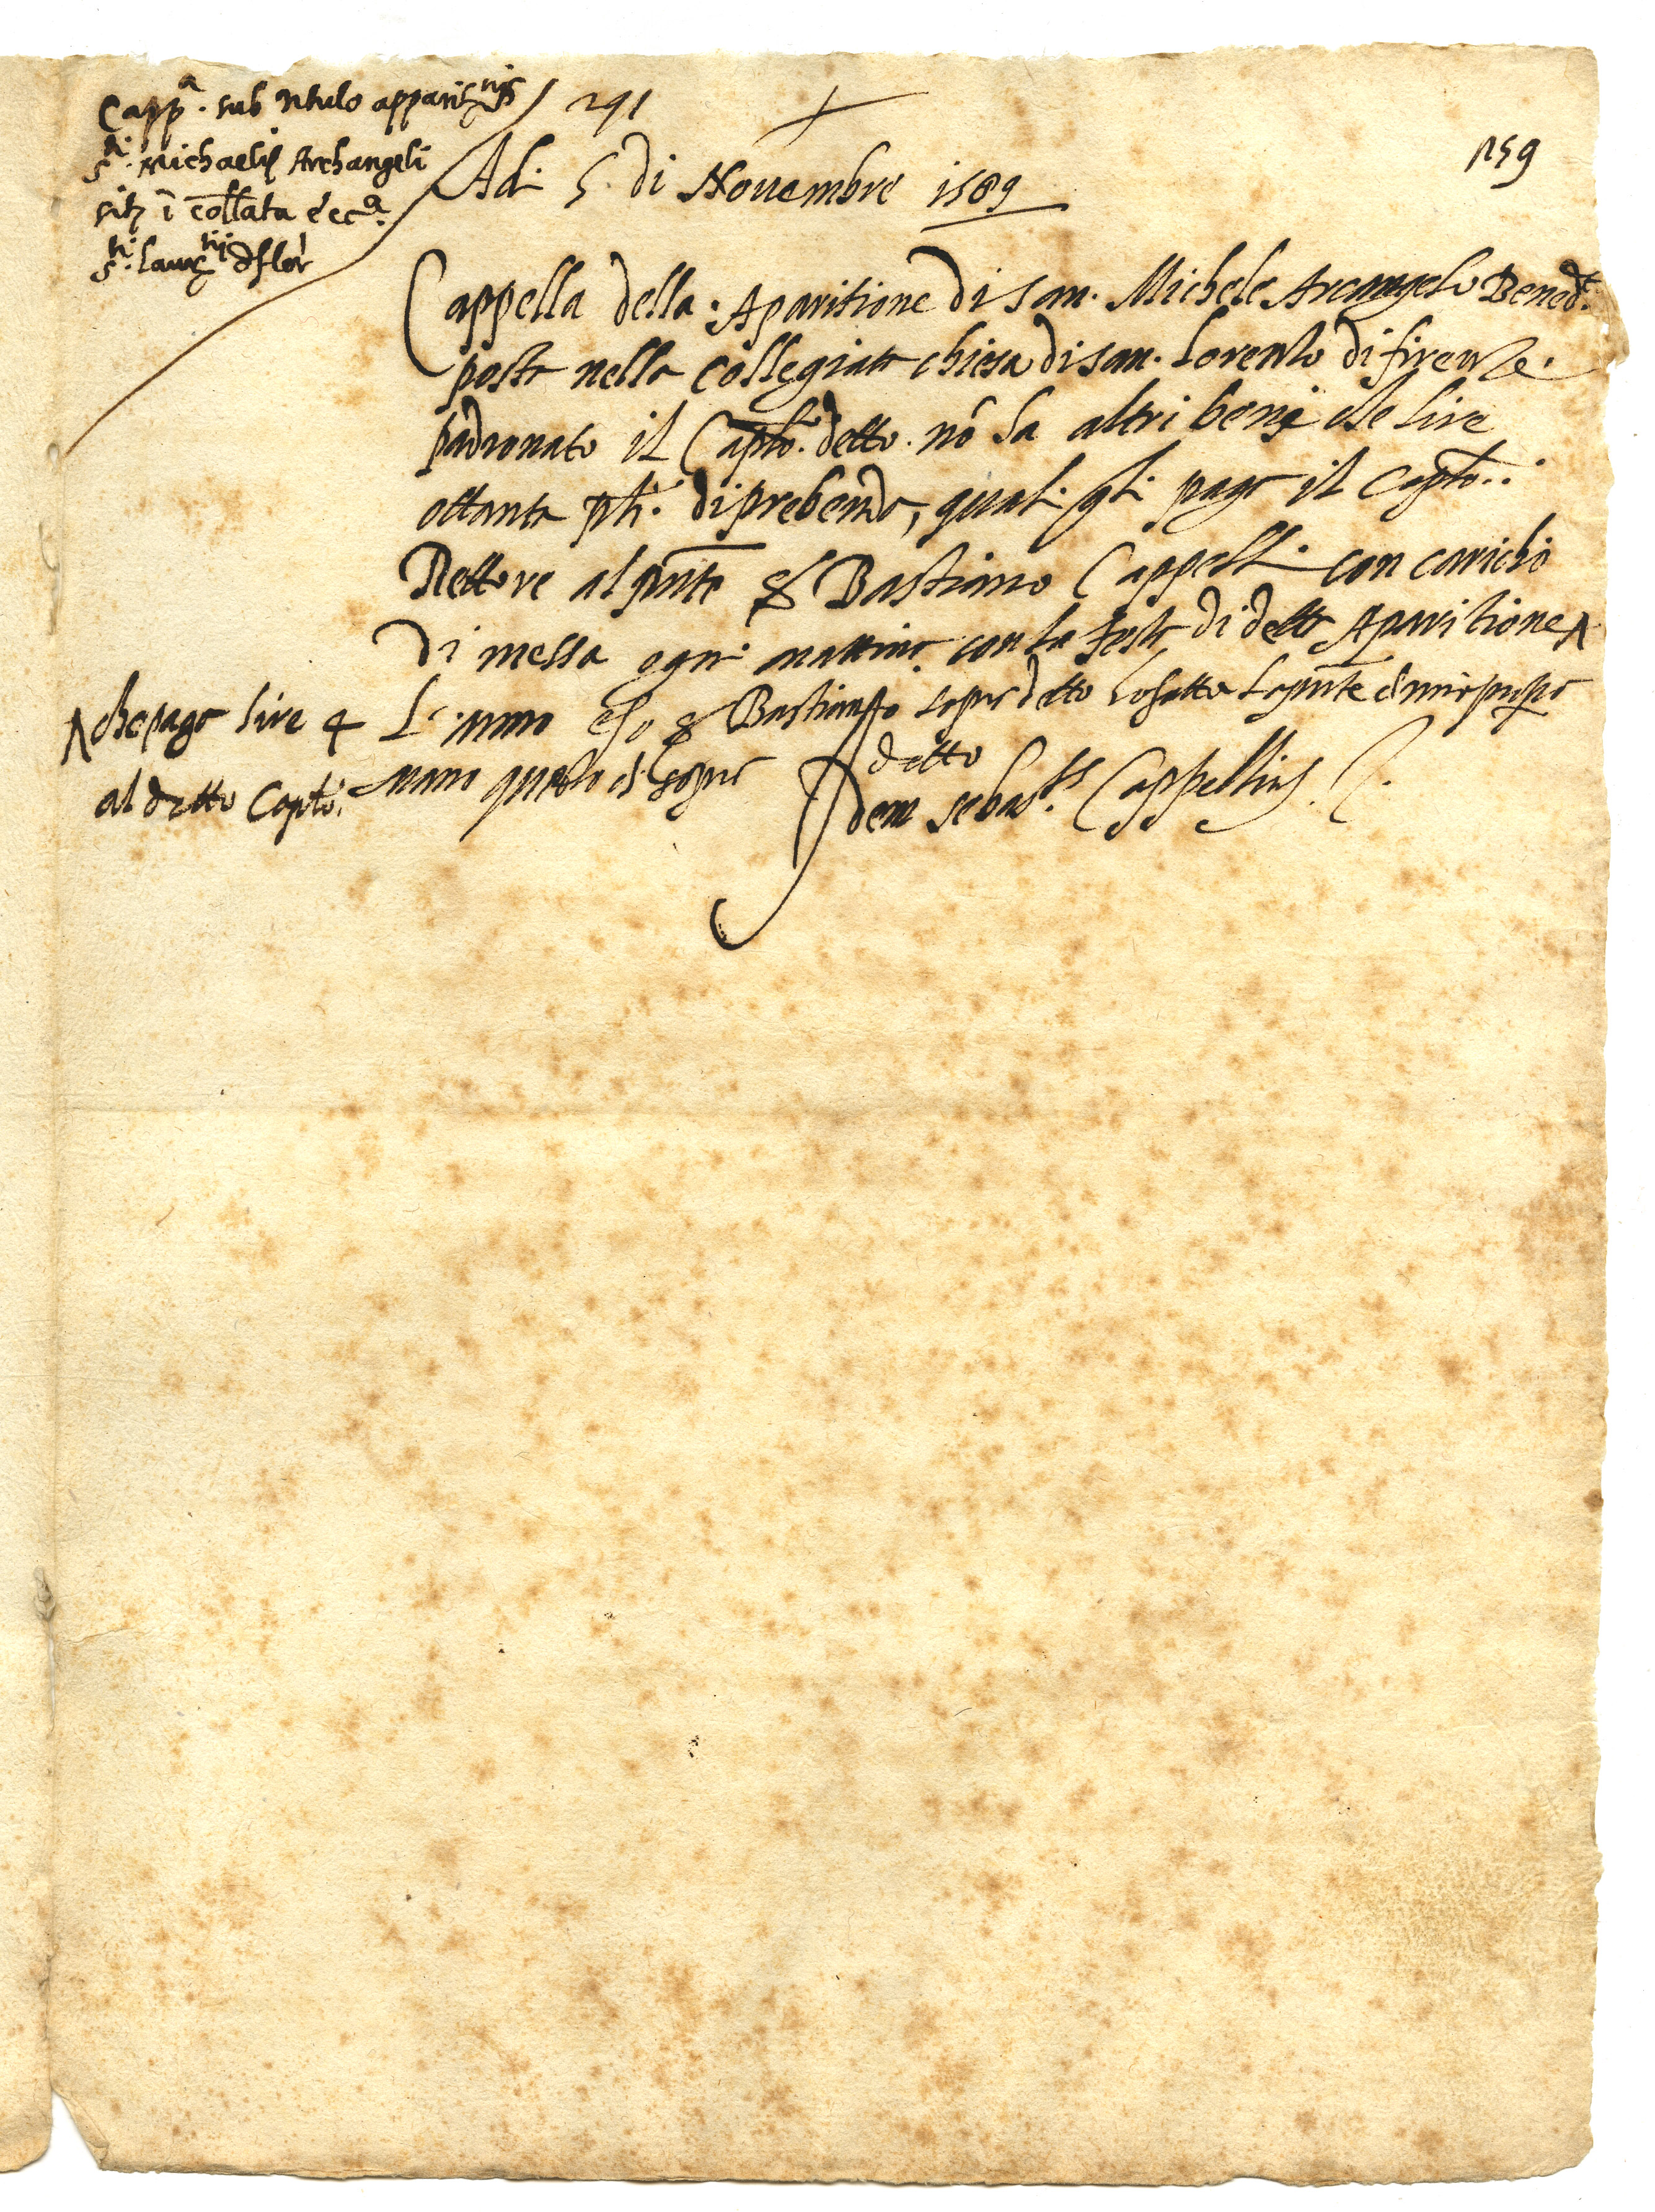 Capp.a sub titulo apparit.nis
S.ti Michaelis Archangeli
sit. ī Coll̄ata ecc.a
S.ti Laur.tij d flor.
291
159
Adi 5. di Nouembre 1589
Cappella della Aparitione di san. Michele Arcangelo Bened.o
posta nella collegiata chiesa di san. Lorenzo di firenze.
padronato il Capto. detto. nō ha altri beni che lire
ottanta di prebenda, quali gli paga il Capto.
Rettore al pn̄te Bastiano Cappelli con caricho
di messa ogni mattina con la festa di detta Aparitione ^
^ che paga lire 4
al detto Capto.
L'anno e Bastiano sopra detto ho fatto la pn̄te di mia propria
mano questo dì sopra detto
Idem Sebast.s Cappellius